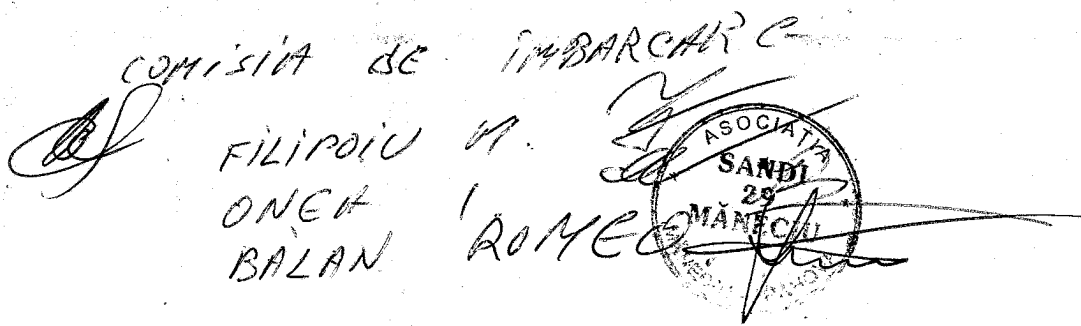 COMISIA DE IMBARCARE
FILIPOIU M.
ONEA I
BALAN ROMEO
ASOCIAȚIA
SANDI
29
MĂNECIU